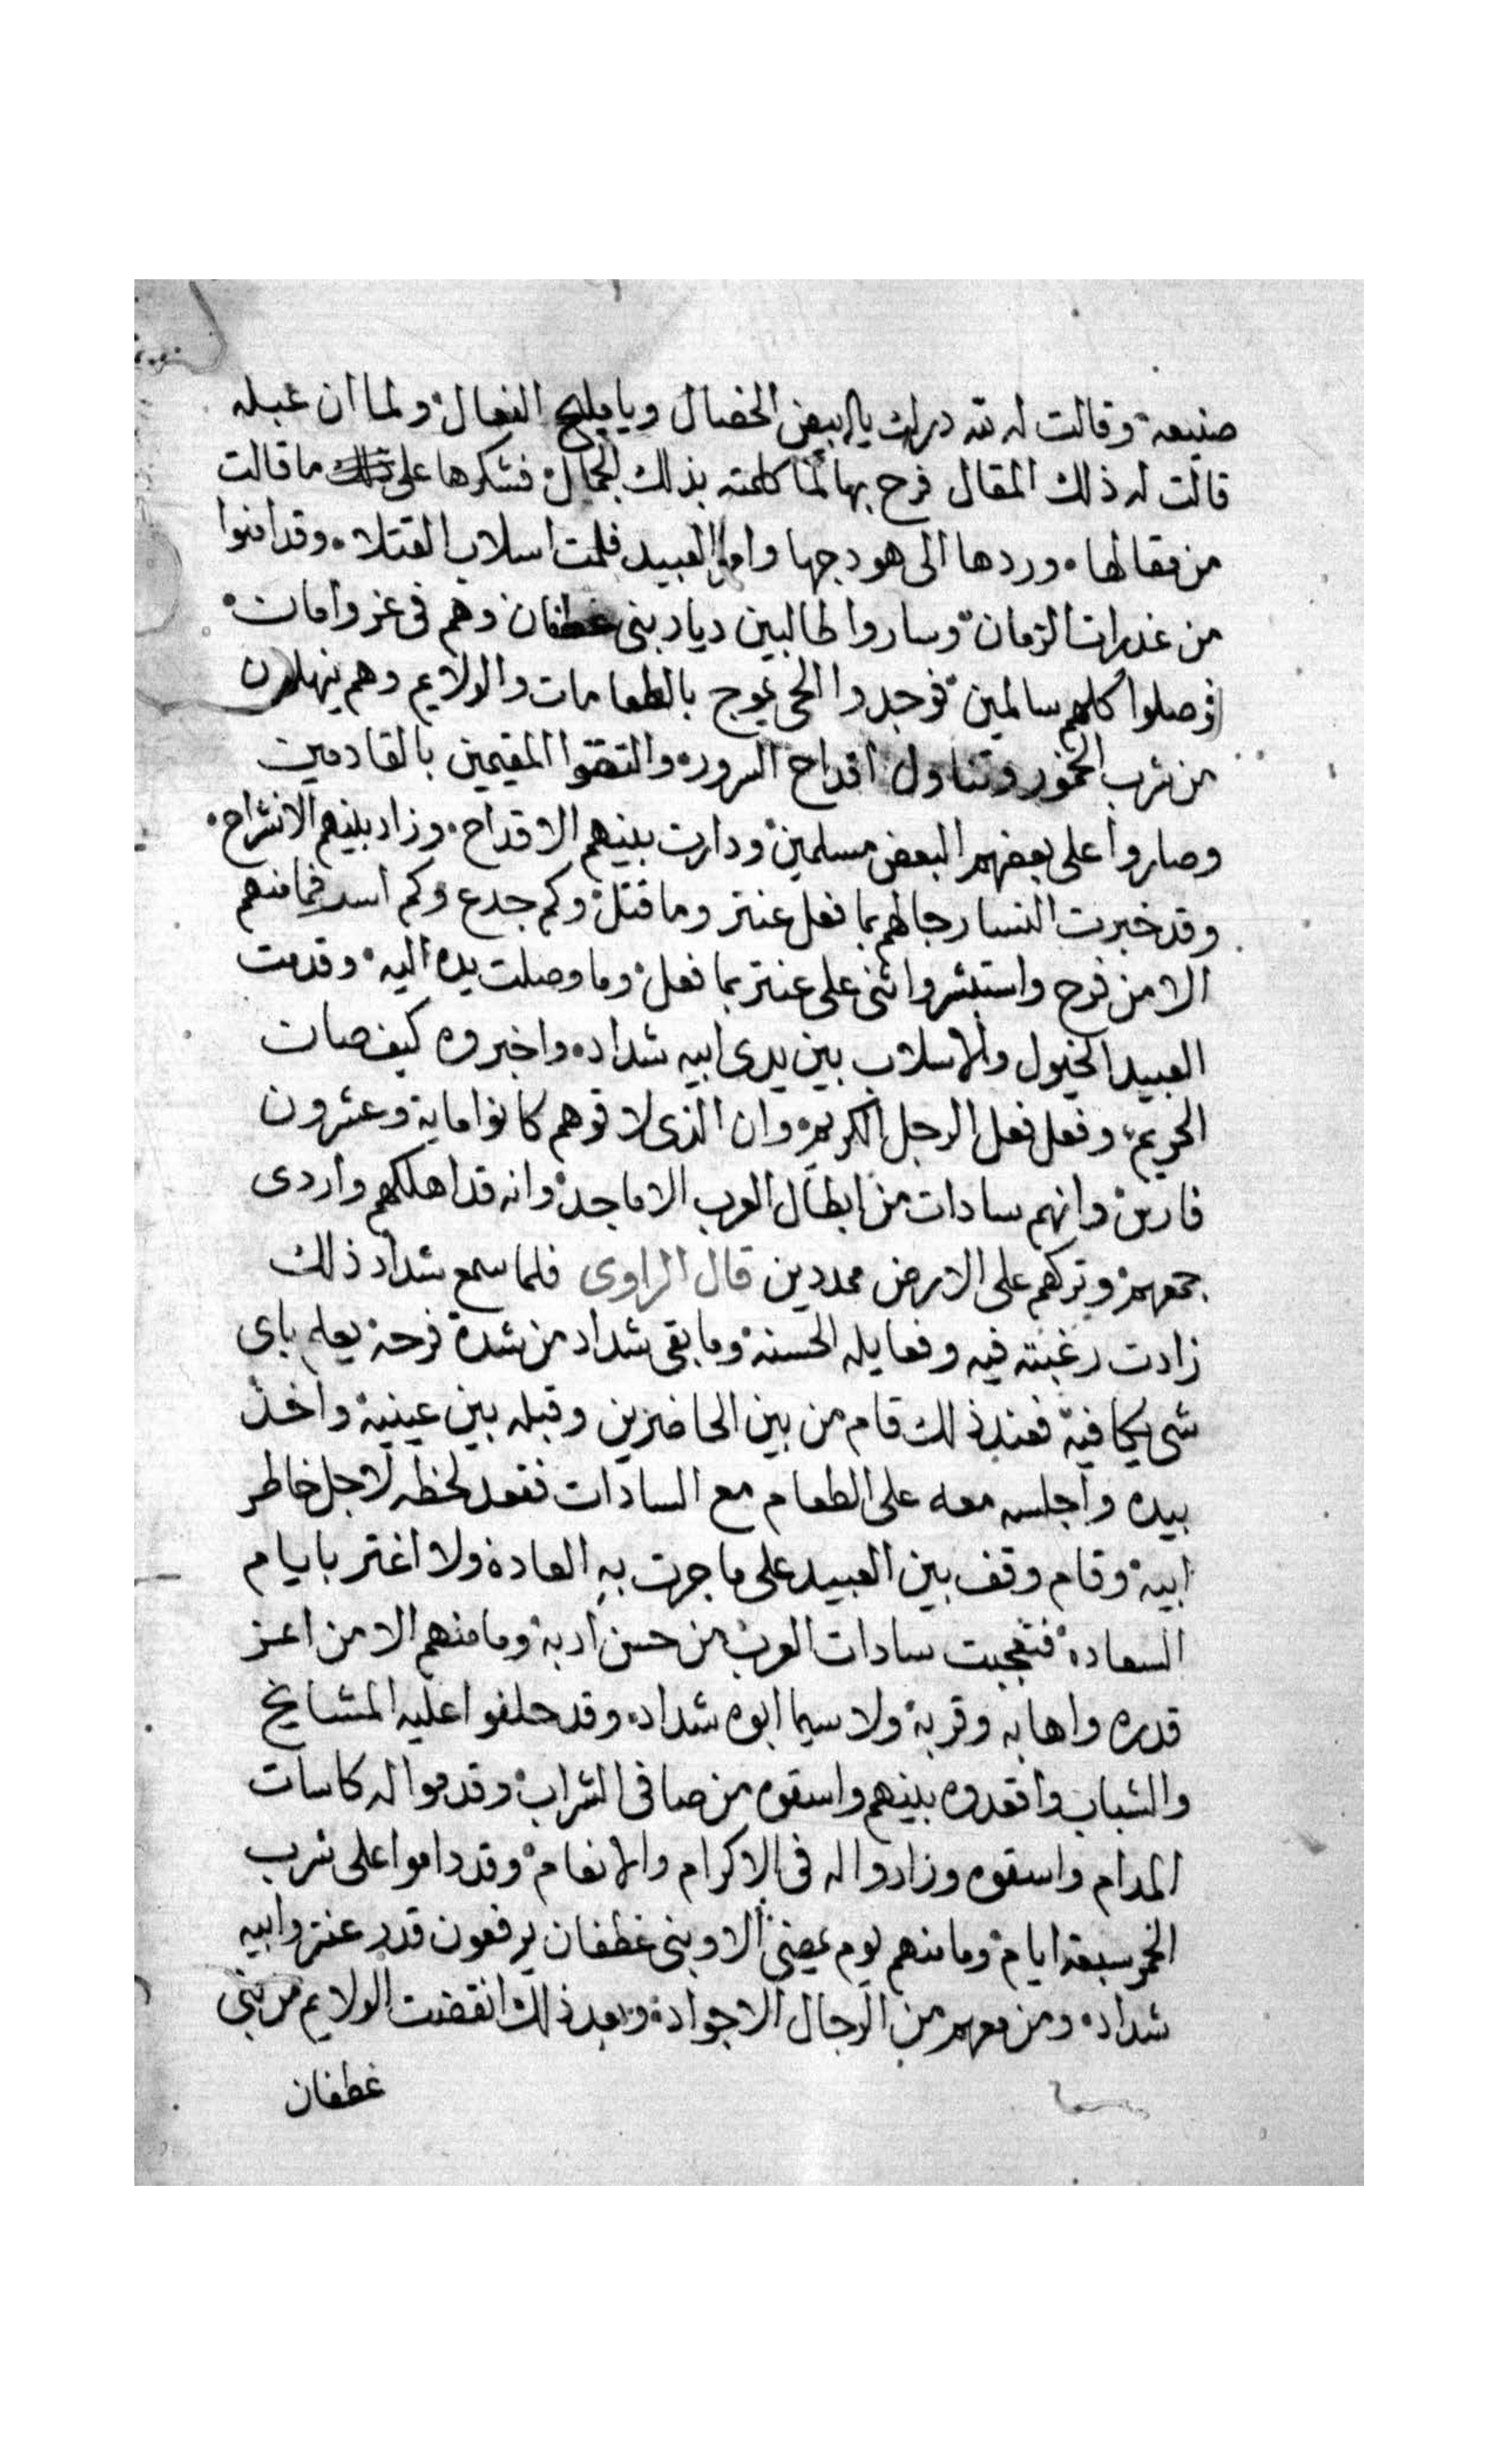 صنيعه وقالت له لله درك يا ابيض الخصال ويا مليح الفعال ولما ان عبله
قالت له ذلك المقال فرح بها لما كلمته بذلك الجمال فشكرها على ما قالت
من مقالها وردها الى هودجها واما العبيد فلمت اسلاب القتلا وقد امنوا
من غدرات الزمان وساروا طالبين ديار بنى غطفان وهم فى عز وامان
فوصلوا كلهم سالمين فوجدوا الحى يموج بالطعامات والولايم وهم ينهلون
من شرب الخمور وتناول اقداح السرور والتقوا المقيمين بالقادمين
وصاروا على بعضهم البعض مسلمين ودارت بينهم الاقداح وزاد بينهم الانشراح
وقد خبرت النسا رجالهم بما فعل عنتر وما قتل وكم جدع وكم اسد فما منهم
الا من فرح واستبشر واثنى على عنتر بما فعل وما وصلت يده اليه وقدمت
العبيد الخيول والاسلاب بين يدى ابيه شداد واخبروه كيف صان
الحريم وفعل فعل الرجل الكريم وان الذى لاقوهم كانوا ماية وعشرون
فارس وانهم سادات من ابطال العرب الاماجد وانه قد اهلكهم واردى
جمعهم وتركهم على الارض ممددين قال الراوى فلما سمع شداد ذلك
زادت رغبته فيه وفعايله الحسنه وما بقى شداد من شدة فرحه يعلم باى
شى يكافيه فعند ذلك قام من بين الحاضرين وقبله بين عينيه واخذ
بيده واجلسه معه على الطعام مع السادات فقعد لحظه لاجل خاطر
ابيه وقام وقف بين العبيد على ما جرت به العاده ولا اغتر بايام
السعاده فتعجبت سادات العرب من حسن ادبه وما منهم الا من اعز
قدره واهابه وقربه ولا سيما ابوه شداد وقد حلفوا عليه المشايخ
والشباب واقعدوه بينهم واسقوه من صافى الشراب وقدموا له كاسات
المدام واسقوه وزادوا له فى الاكرام والانعام وقد داموا على شرب
الخمر سبعة ايام وما منهم يوم يمضى الا وبنى غطفان يرفعون قدر عنتر وابيه
شداد ومن معهم من الرجال الاجواد وبعد ذلك انقضت الولايم من بنى
غطفان